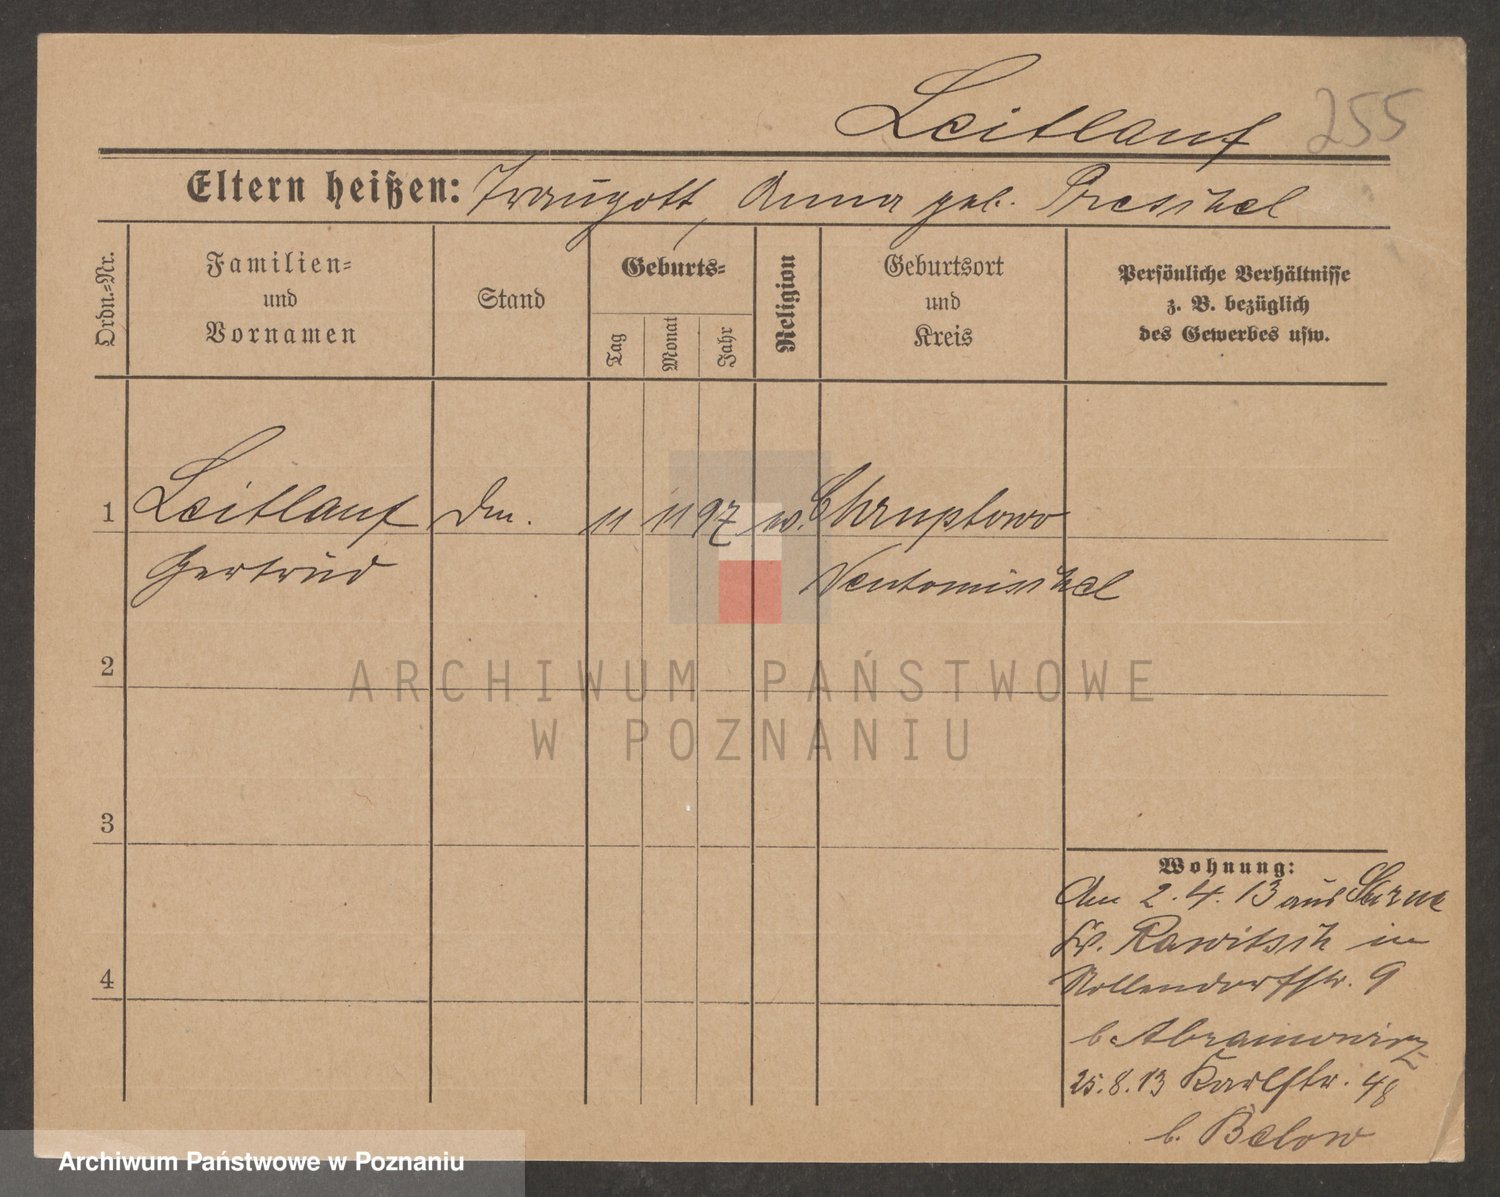 Leitlauf 255
Eltern heißen: Traugott, Anna geb. Preschel
Ordn.-Nr.
Familien-
und
Vornamen
Stand
Geburts-
Tag
Monat
Jahr
Religion
Geburtsort
und
Kreis
Persönliche Verhältnisse
z. B. bezüglich
des Gewerbes usw.
1 Leitlauf 11 11 97 Chruptowo
Gertrud Neutomischel
2
3
4
Wohnung:
Am 2.4.13 aus Sarne
Kr. Rawitsch in
Nollendorfstr. 9
b. Abramowicz
25.8.13 Karlstr. 48
b. Below
ARCHIWUM PAŃSTWOWE
W POZNANIU
Archiwum Państwowe w Poznaniu